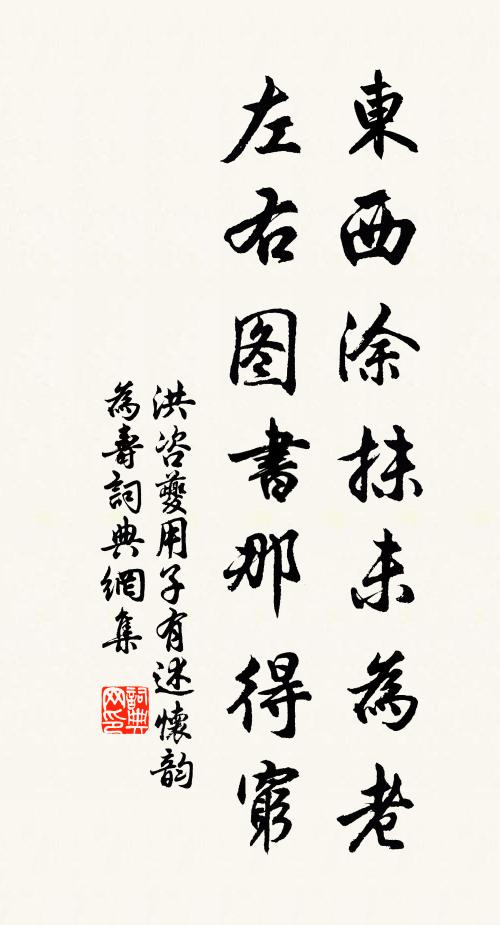 東西涂抹未為老
左右图書那得窮
洪咨夔用子有述懷韵
為壽詞典網集
詞典
网印